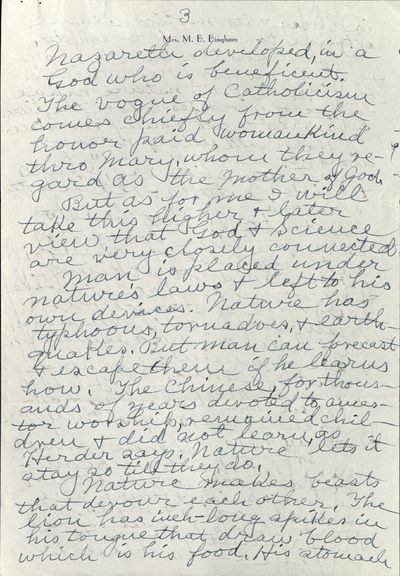 3
Mrs. M. B. Bingham
Nazareth developed, in a
God who is beneficent.
The vogue of Catholicism
comes chiefly from the
honor paid womankind
thro Mary, whom they re-
gard as the Mother of God.
But as for me I will
take this higher & later
view that God & Science
are very closely connected.
Man is placed under
nature's laws & left to his
own devices. Nature has
typhoons, tornadoes, & earth-
quakes. But man can forecast
& escape them if he learns
how. The Chinese, for thous-
ands of years devoted to ances-
tor worship, remained chil-
dren & did not learn, as
Herder says. Nature lets it
stay so till they do.
Nature makes beasts
that devour each other. The
lion has inch-long spikes in
his tongue that draw blood
which is his food. His stomach